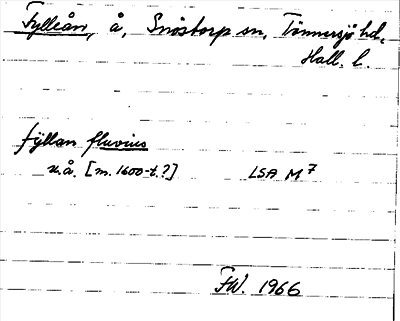 Fylleån, å, Snöstorp sn, Tönnersjö hd,
Hall. l.
fÿllan fluvius
u.å. [m. 1600-t.?] LSA M 7
FW. 1966